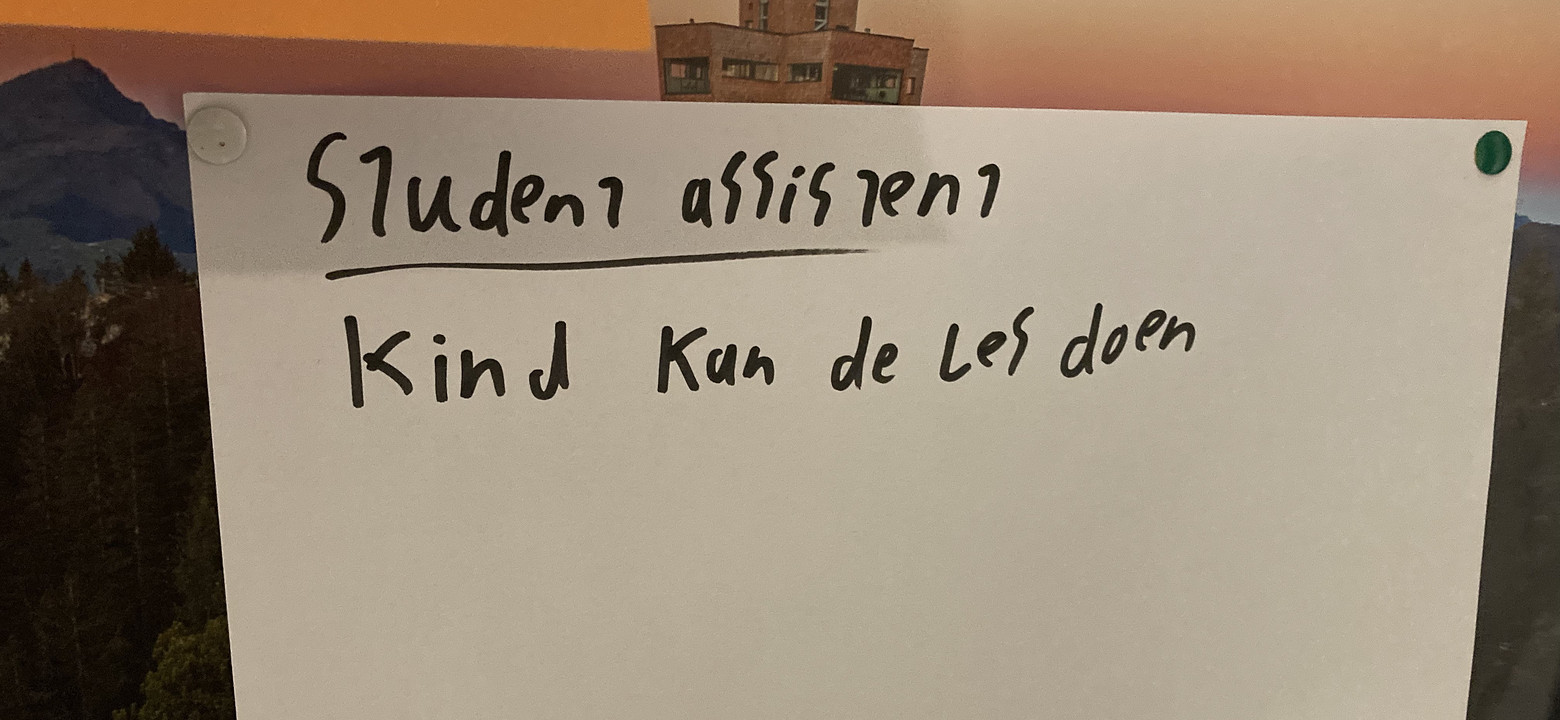 Student assistent
Kind kan de les doen